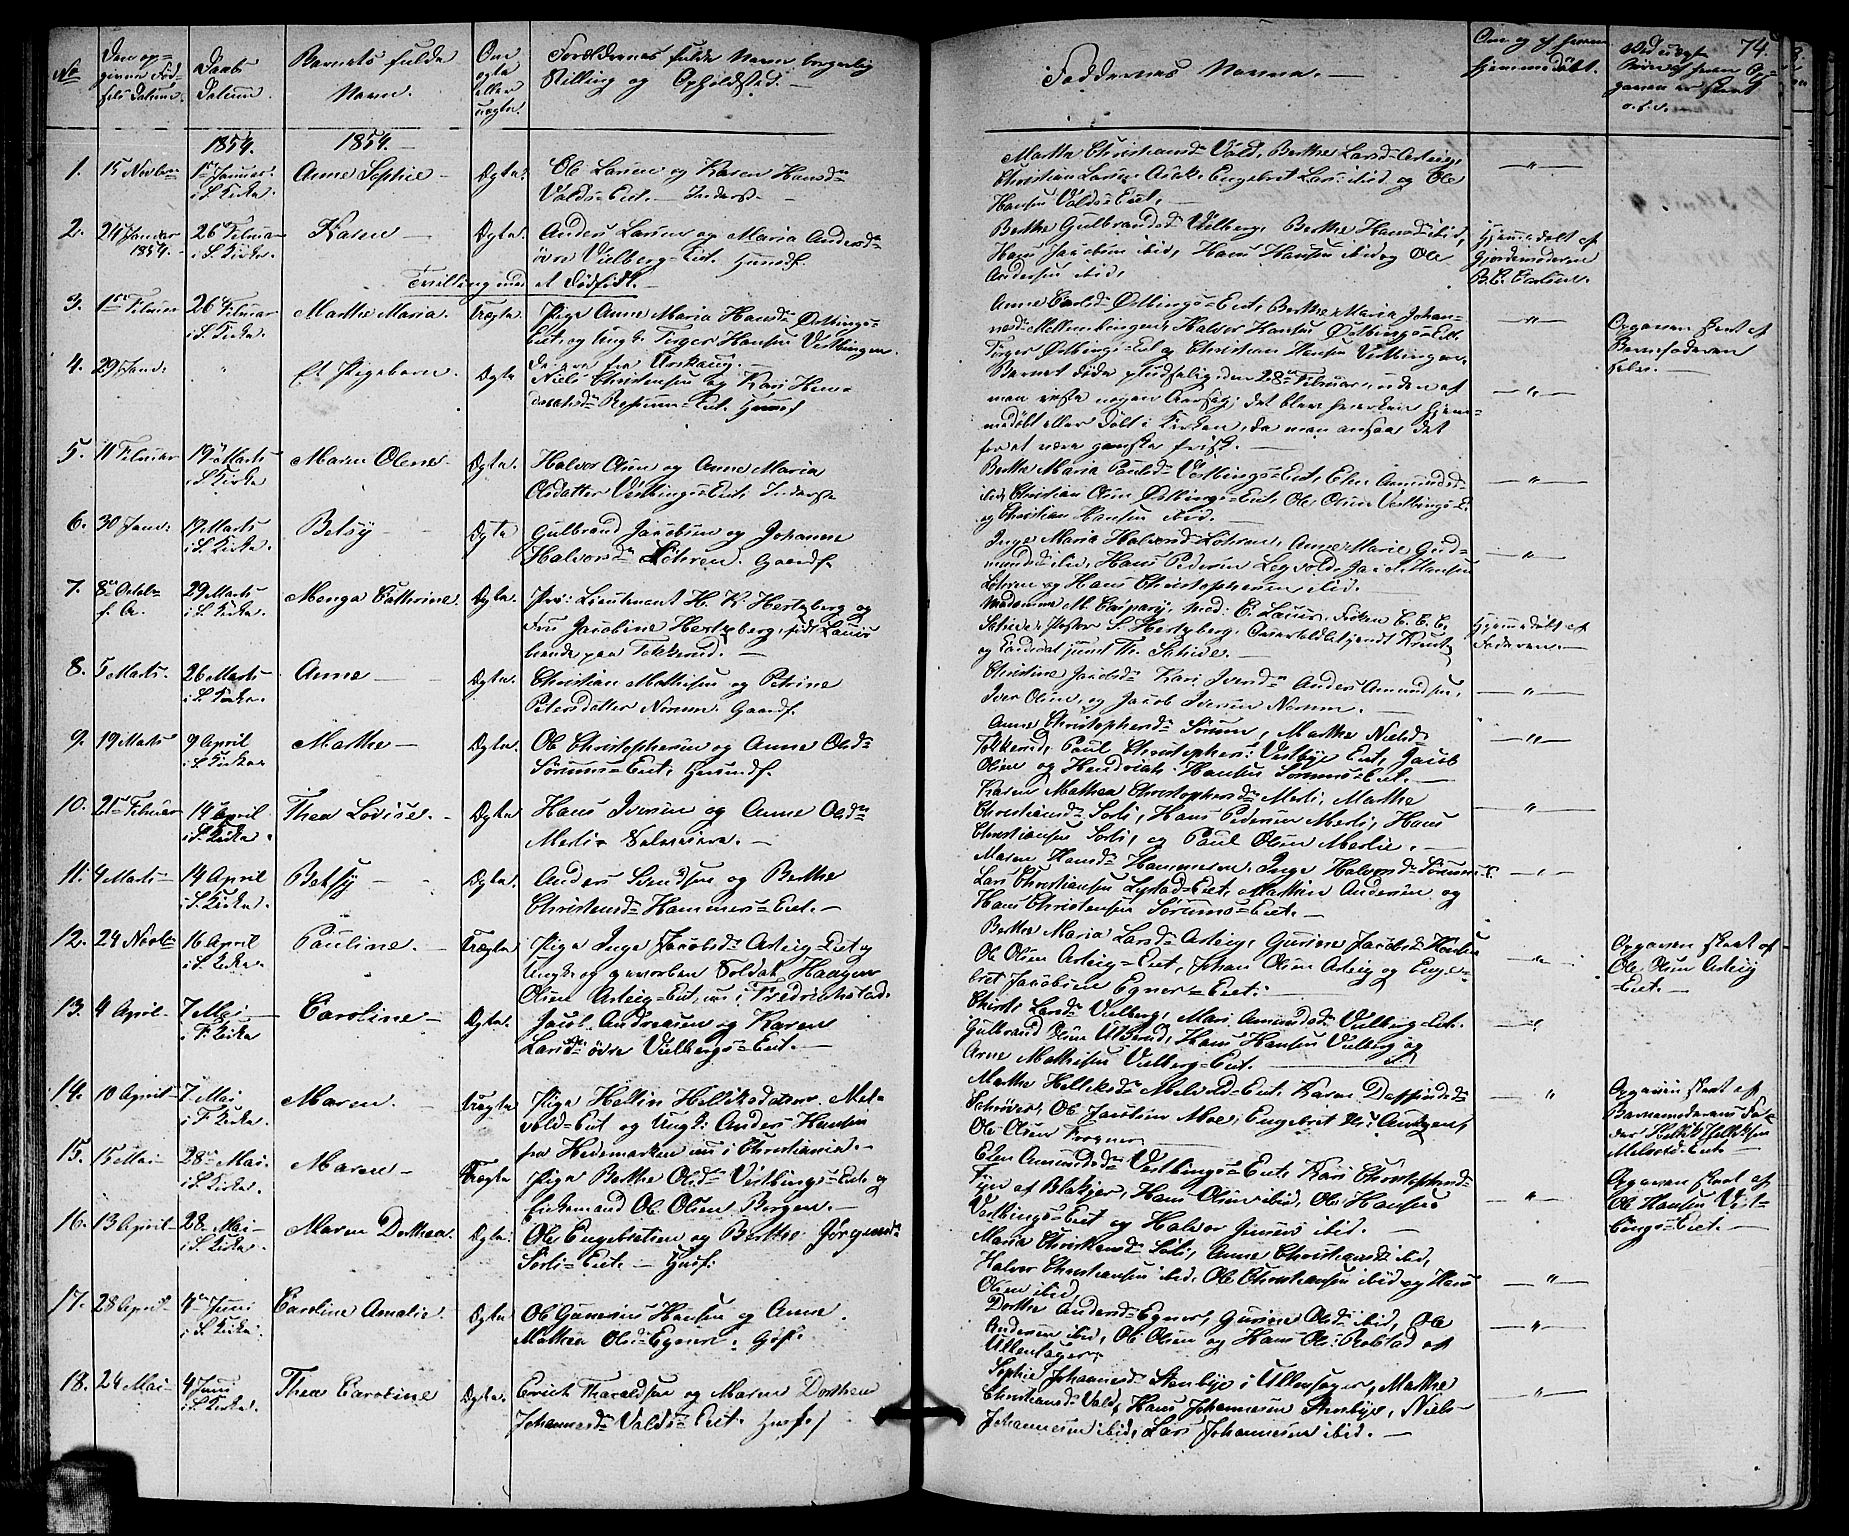 No
Den op-
givne Fød-
sels Datum.
Daabs
Datum.
Barnets fulde
Navn.
Om
egte
eller
uegte.
Forældrenes fulde Navn borgerlig
Stilling og Opholdsted.
Faddernes Navne.
Om og af hvem
hjemmedøbt.
74.
1854.
1854.
1. 15 Novbr
1ste Januar
i S. Kirke.
Anne Sophie
Ægte.
Ole Larsen og Karen Hansdr
Valds-Eiet. Inderst.
Marthe Christiansdr Vald, Berthe Larsdr Asteig,
Christian Larsen Engebret Larsen ibid og Ole
Hansen Valds-Eiet.
2. 24 Januar
1854.
26 Februar
i S. Kirke.
Karen
Ægte.
Anders Larsen og Maria Andersdr
øvre Vulberg-Eiet. Huusf.
Tvilling med et Dødfødt.
Berthe Gulbrandsdr Vulberg, Berthe Hansdr ibid,
Hans Jacobsen ibid, Hans Hansen ibid og Ole
Andersen ibid,
Hjemmedøbt af
Gjordemoderen
3. 1ste Februar
26 Februar
i S. Kirke.
Marthe Maria.
Uægte.
Pige Anne Maria Hansdr Østbings-
Eiet og Ungk: Torger Hansen Vestbingen.
Anne Carlsdr Østbings-Eiet, Berthe Maria Johan-
nesdr Mellembingen, Halvor Hansen Østbings-Eiet
Torger Østbings-Eiet og Christian Hansen Vestbingen.
Opgaven skeet af
Barnefaderen
selv.
4. 29 Jan:
Et Pigebarn.
Ægte
Niels Christensen og Kari Hen-
Huusf
Barnet døde pludselig den 28de Februar, uden at
man vidste nogen Aarsag; det blev hverken hjem-
medøbt eller døbt i Kirken, da man ansaa det
for at være ganske friskt.
5. 11 Februar
19 Marts
i S. Kirke
Maren Olene.
Ægte.
Halvor Olsen og Anne Maria
Olsdatter Vestbings-Eiet, Inderste
Berthe Maria Paulsdr Vestbings-Eiet, Elen Amundsdr
ibid, Christian Olsen Østbings-Eiet, Ole Olsen Vestbings-E.
og Christian Hansen ibid.
6. 30 Jan:
19 Marts
i S. Kirke.
Betsy
Ægte
Gulbrand Jacobsen og Johanne
Halvorsdr Løhren. Gaardf.
Inge Maria Halvorsdr Løhren, Anne Marie Gud-
mundsdr ibid, Hans Pedersen Hansen
Løhren og Hans Christophersen ibid.
7. 8de Octob
f. A.
29 Marts
i S. Kirke.
Menga Cathrine.
Ægte.
Pr: Lieutenant H. K. Hertzberg og
Fru Jacobine Hertzberg, født Lauer
boende paa Tokkerud.
Madamme M. Caspary, Mad: C. Lauer, Frøken E. C. C.
Schive, Pastor S. Hertzberg,
og Candidat Th. Schive.
Hjemmedøbt af
Faderen.
8. 5 Marts.
26 Marts
i S. Kirke.
Anne
Ægte.
Christian Mathisen og Petrine
Petersdatter Norum. Gaardf.
Christine Jacobsdr Kari Iversdr Anders Amundsen,
Iver Olsen og Jacob Iversen Norum.
9. 19 Marts
9 April
i S. Kirke
Marthe
Ægte.
Ole Christophersen og Anne Olsdr
Sørums-Eiet, Huusmf.
Anne Christophersdr Sørum, Marthe Nielsdr
Tokkerud, Paul Christophers: Vestbye Eiet, Jacob
Olsen og Hendrich Hansen Sørums-Eiet.
10. 21de Februar
14 April
i S. Kirke.
Thea Lovise.
Ægte
Hans Iversen og Anne Olsdr
Merli
Karen Mathea Christophersdr Merli, Marthe
Christiansdr Sorli, Hans Pedersen Merli, Hans
Christiansen Sorli, og Paul Olsen Merlie.
11. 4 Marts
14 April
i S. Kirke.
Betsy
Ægte.
Anders Svendsen og Berthe
Christensdr Hammers-Eiet.
Maren Hansdr Hammeren, Inge Halvorsdr Sørums-E.
Lars Christiansen Lystad-Eiet, Mathias Andersen og
Hans Christensen Sørums-Eiet.
12. 24 Novbr
16 April
i S. Kirke.
Pauline.
Uægte
Pige Inge Jacobsdr Asteig-Eiet og
Ungk: og gevorben Soldat Haagen
Olsen Asteig-Eiet, nu i Fredrichstad.
Berthe Maria Larsdr Asteig, Gurine Jacobsdr
Ole Olsen Asteig-Eiet, Johan Olsen Asteig og Enge-
bret Jacobsen Egner-Eiet.
Opgaven skeet af
Ole Olsen Asteig
-Eiet.
13. 4 April
7 Mai
i F. Kirke
Caroline
Ægte.
Jacob Andreasen og Karen
Larsdr øvre Vulbergs-Eiet.
Larsdr Vulberg, Mari Amundsdr Vulberg-Eiet.
Gulbrand Olsen Ulverud, Hans Hansen Vulberg og
Arne Mathisen Vulberg-Eiet.
14. 10 April
7 Mai
i F. Kirke.
Maren.
Uægte
Pige Hellin Helliksdatter Mel-
vold-Eiet og Ungk: Anders Hansen
fra Hedemarken nu i Christiania.
Marthe Helliksdr Melvold-Eiet, Karen
Ole Jacobsen Moe, Engebrit
Ole Olsen Frogner
Opgaven skeet af
Barnemoderens Fa-
der Hellik Helliksen
Melvold-Eiet
15. 15 Mai
28de Mai.
i S. Kirke.
Maren
Uægte
Pige Berthe Olsdr Vestbings-Eiet og
Enkemand Ole Olsen Borgen.
Elen Amundsdr Vestbings-Eiet, Kari Christophersdr
af Blakjer, Hans Olsen ibid, Ole Hansen
Vestbings-Eiet og Halvor Jensen ibid.
Opgaven skeet af
Ole Hansen Vest-
bings-Eiet.
16. 13 April
28 Mai
i S. Kirke.
Maren Dorthea.
Ægte.
Ole Engebretsen og Berthe Jørgensdr
Sorli-Eiet. Husf.
Maria Christiansdr Sorli, Anne Christiansdr ibid,
Halvor Christiansen ibid, Ole Christiansen ibid og Hans
Olsen ibid,
17. 28 April
4de Juni
i S. Kirke.
Caroline Amalie.
Ægte
Ole Gunerius Hansen og Anne
Mathea Olsdr Egner.
Dorthe Andersdr Egner, Gurine Olsdr ibid, Ole
Andersen ibid, Ole Olsen og Hans Ols: Robstad af
Ullensager.
18. 24 Mai
4 Juni
i S. Kirke.
Thea Caroline
Ægte.
Erich Tharaldsen og Maren Dorthea
Johannesdr Valds-Eiet. Husf.
Sophie Johannesdr Stenbye i Ullensager, Marthe
Christiansdr Vald, Hans Johannesen Stenbye, Niels
Johannesen ibid, Lars Johannesen ibid.